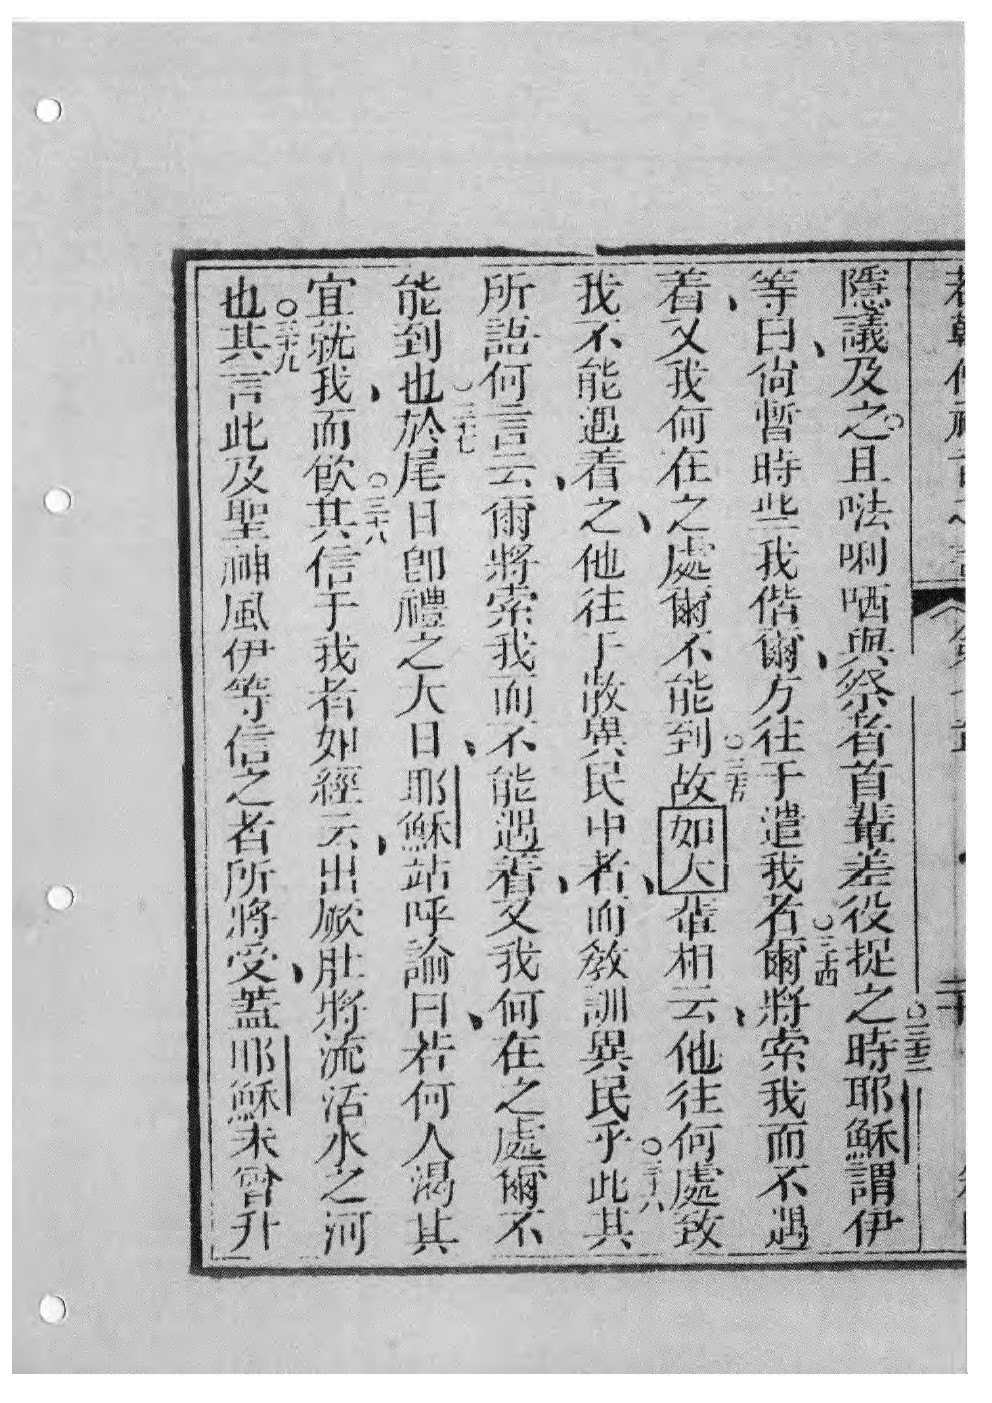 隱議及之且𠵽唎哂與祭者首輩差役捉之時○三十三耶穌謂伊
等曰尙暫時些我偕爾方往于遣我者○三十四爾將索我而不遇
着又我何在之處爾不能到○三十五故如大輩相云他往何處致
我不能遇着之他往于散異民中者而敎訓異民乎○三十六此其
所語何言云爾將索我而不能遇着又我何在之處爾不
能到也○三十七於尾日卽禮之大日耶穌站呼諭曰若何人渴其
宜就我而飮○三十八其信于我者如經云出厥肚將流活水之河
也○三十九其言此及聖神風伊等信之者所將受蓋耶穌未曾升